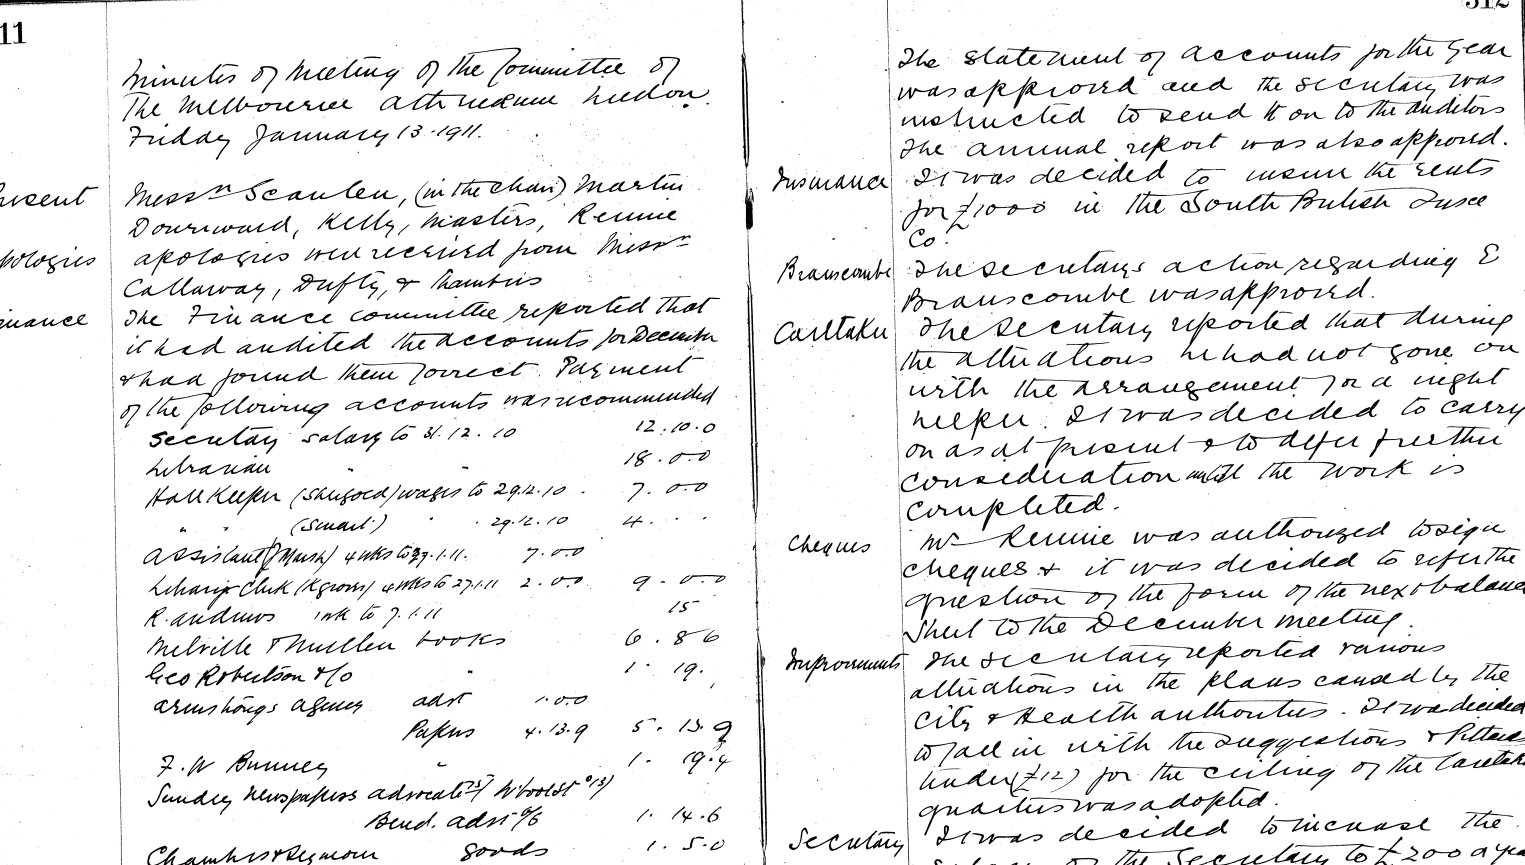 11
Minutes of Meeting of the Committee of
The Melbourne Athenaeum held on
Friday January 13. 1911.
Present
Messrs Scanlen, (in the chair) Martin
Downward, Kelly, Masters, Rennie
Apologies
apologies were received from Messrs
Callaway, Duffy, &
Finance
The Finance committee reported that
it had audited the accounts for December
& had found them correct. Payment
of the following accounts was recommended
Secretary salary to 31.12.10 12.10.0
Librarian " " 18.0.0
Hall Keeper wages to 29.12.10 . 7.0.0
" " (Smart) " . 29.12.10 4. . .
Assistant (Marsh) 4 wks to 27.1.11. 7.0.0
Library Clerk 4 wks to 27.1.11 2.0.0 9.0.0
R. Andrews to 7.1.11 15
Melville & Mullen books 6.8.6
Geo Robertson & Co " 1.19.
Armstrongs Agency advt 1.0.0
Papers 4.13.9 5.13.9
F. W Bunney " 1.19.4
Sundry Newspapers Advocate
Bend. advt 1.14.6
Chambers & Seymour goods 1.5.0
312
The statement of accounts for the year
was approved and the secretary was
instructed to send it on to the auditors
The annual report was also approved.
Insurance
It was decided to insure the rents
for £1000 in the South British Insce
Co.
Branscombe
The secretary's action regarding E
Branscombe was approved.
Caretaker
The Secretary reported that during
the alterations he had not gone on
with the arrangement for a night
keeper. It was decided to carry
on as at present & to defer further
consideration until the work is
completed.
Cheques
Mr Rennie was authorized to sign
cheques & it was decided to refer the
question of the form of the next balance
sheet to the December meeting.
Improvements
The secretary reported various
alterations in the plans caused by the
City & Health authorities. It was decided
to fall in with the suggestions &
tender (£12) for the ceiling of the Caretaker
quarters was adopted.
Secretary
It was decided to increase the
salary of the Secretary to £200 a year